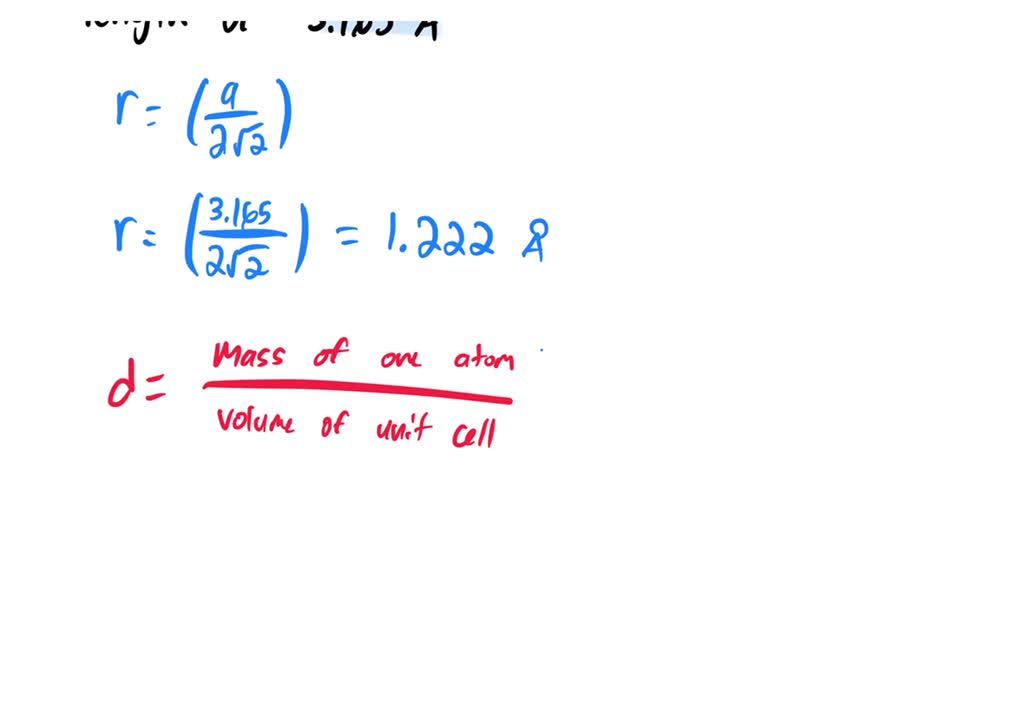 length of 3.165 Å
r = (a / 2√2)
r = (3.165 / 2√2) = 1.222 Å
d = mass of one atom / volume of unit cell